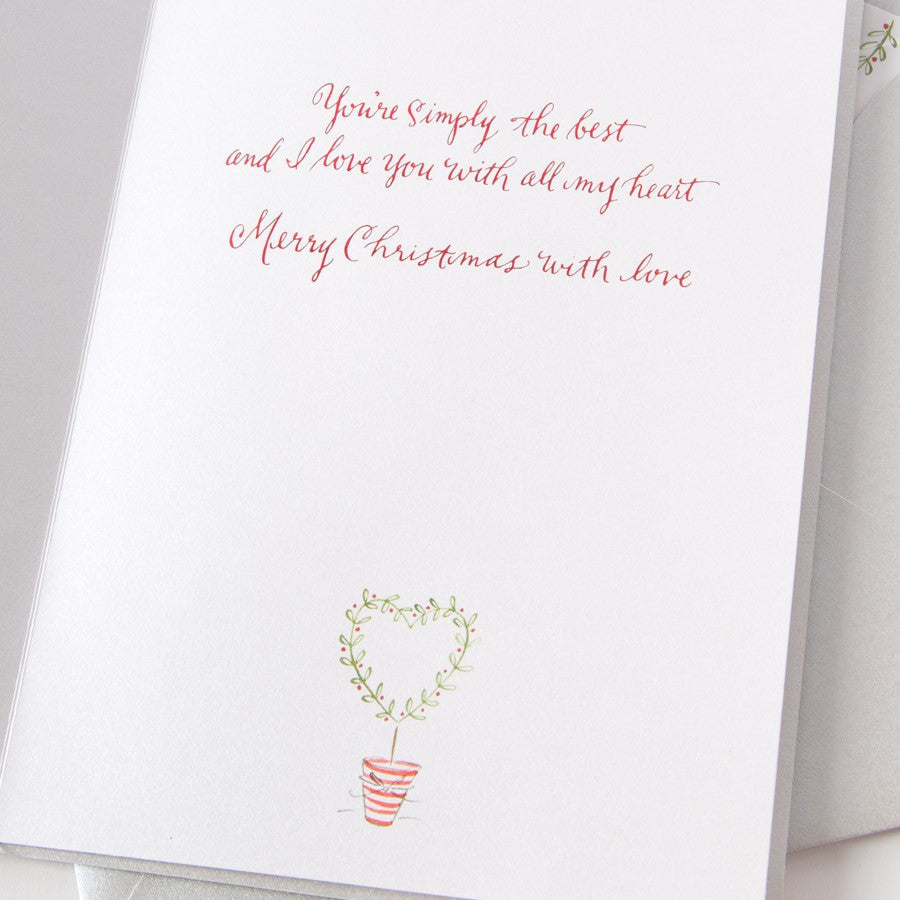 You're Simply the best
and I love you with all my heart
Merry Christmas with love